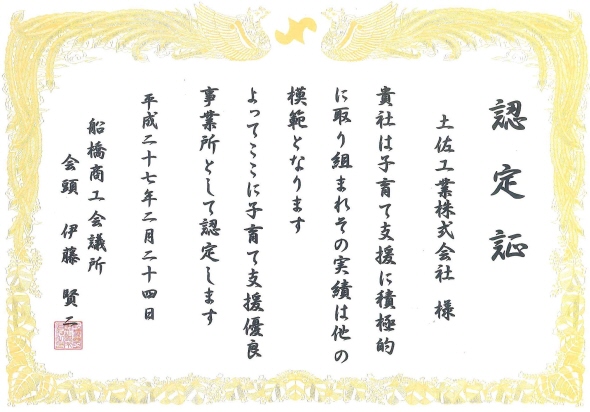 認定証
土佐工業株式会社 様
貴社は子育て支援に積極的
に取り組まれその実績は他の
模範となります
よってここに子育て支援優良
事業所として認定します
平成二十七年二月二十四日
船橋商工会議所
会頭 伊藤 賢二